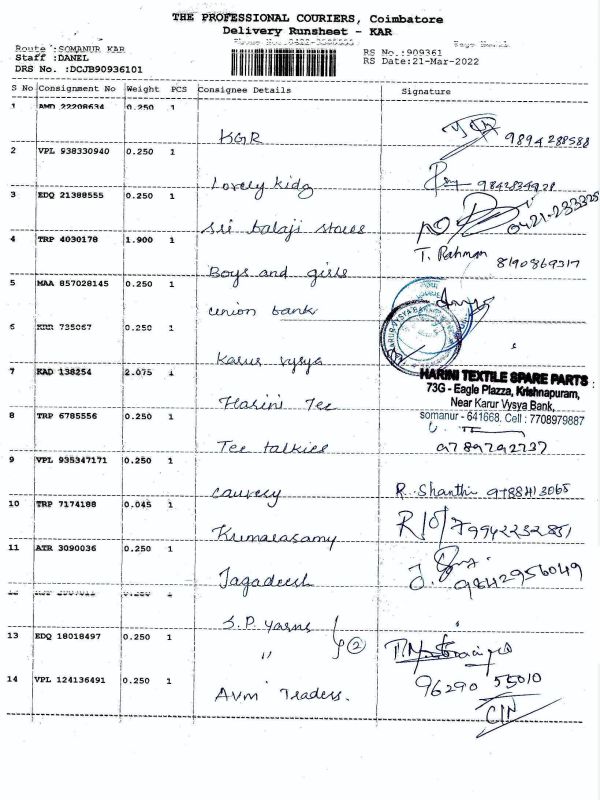 THE PROFESSIONAL COURIERS, Coimbatore
Delivery Runsheet - KAR
Route :SOMANUR KAR
RS No.:909361
Staff :DANEL
RS Date:21-Mar-2022
DRS No. :DCJB90936101
S No Consignment No Weight PCS Consignee Details Signature
1 AMD 22208634 0.250 1
KGR 9894288588
2 VPL 938330940 0.250 1
Lovely kidz
3 EDQ 21388555 0.250 1
Sri balaji stores 0421-233325
4 TRP 4030178 1.900 1
T. Rahman
Boys and girls 8190869317
5 MAA 857028145 0.250 1
union bank
6 KRR 735067 0.250 1
Karur vysya
7 KAD 138254 2.075 1
HARINI TEXTILE SPARE PARTS
73G - Eagle Plazza, Krishnapuram,
Near Karur Vysya Bank,
somanur - 641668. Cell : 7708979887
Harini Tec
8 TRP 6785556 0.250 1
Tee talkies 9789792737
9 VPL 935347171 0.250 1
cauvery R. Shanthi 9788413065
10 TRP 7174188 0.045 1
Kumarasamy 9942232851
11 ATR 3090036 0.250 1
Jagadeesh 9842956049
12
S.P. yarns
13 EDQ 18018497 0.250 1
" 2
14 VPL 124136491 0.250 1
96290 55010
Avm Traders.